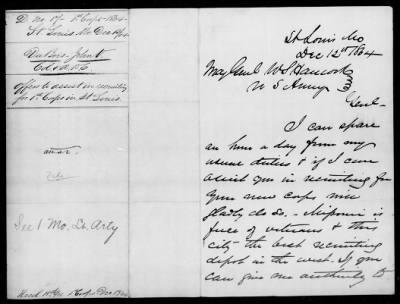 D No 17. 1st Corps 1864
St Louis Mo Dec 12/64
DuBois John V
Col & A.D.C.
Offers to assist in recruiting
for 1st Corps in St Louis.
ansr.
File
See 1 Mo. Lt. Arty
Recd 1st Corps Dec 1864
St Louis Mo
Dec 12th 1864
Maj Genl W S Hancock
U S Army
Genl-
I can spare
an hour a day from my
duties & if I can
assist you in recruiting for
your new corps will
gladly do so.- Missouri is
full of veterans & this
city the best recruiting
depot in the west. If you
can give me authority to